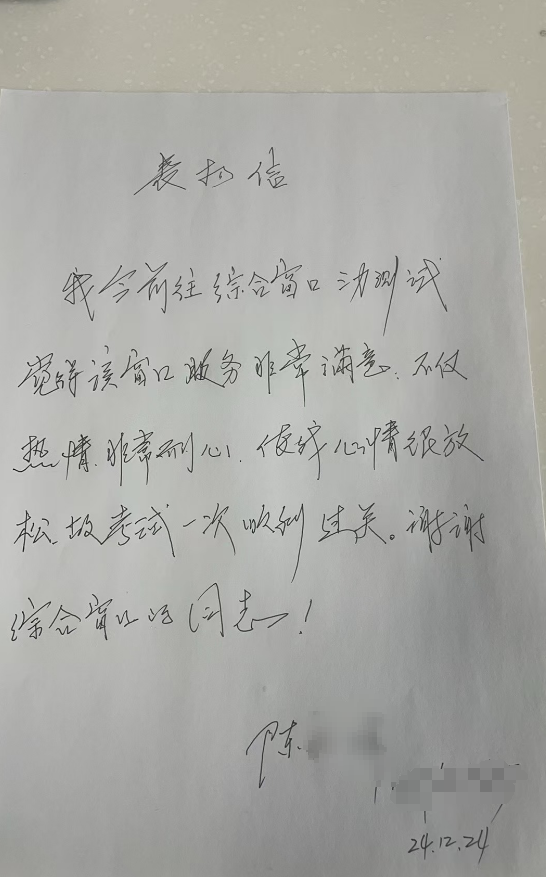 表扬信
我今前往综合窗口力测试
觉得该窗口服务非常满意.不仅
热情.非常耐心.使我心情很放
松.故考试一次顺利过关。谢谢
综合窗口的同志!
陈
24.12.24